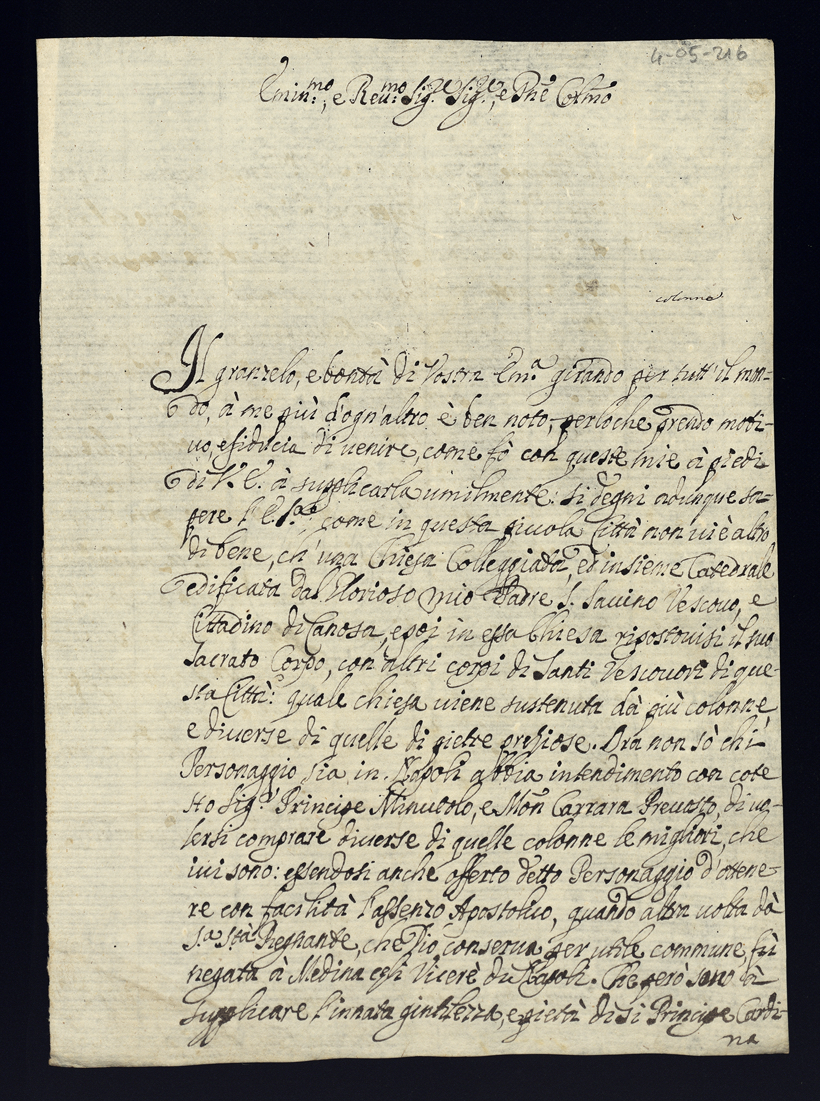 4-05-216
Emin.mo, e Reu.mo Sig.re Sig.re, e Pne Colmo
colonne
Il granzelo, e bontà di Vostra Em.a girando per tutt'il mon-
do, à me più d'ogn'altro è ben noto, perloche prendo moti-
uo, e fiducia di uenire, come fò con queste mie à piedi
di V. E. à supplicarla umilmente: si degni adunque sa-
pere l'E. S., come in questa piccola Città non ui è altro
di bene, ch'una Chiesa Colleggiata, ed insieme Catedrale
edificata dal Glorioso mio Padre S. Sauino Vescouo, e
Cittadino di Canosa, e poi in essa Chiesa ripostouisi il suo
sacrato Corpo, con altri corpi di Santi Vescoui di que-
sta Città: quale chiesa uiene sustenuta da più colonne
e diuerse di quelle di pietre preziose. Ora non sò chi
Personaggio sia in Napoli abbia intendimento con cote
sto Sig.r Principe Minutolo, e Mon Carrara Preuosto, di uo-
lersi comprare diuerse di quelle colonne le migliori, che
iui sono: essendosi anche offerto detto Personaggio d'ottene-
re con facilità l'assenzo Apostolico, quando altra uolta da
S.a Stà Regnante, che Dio conserua per utile commune, fù
negata à Medina Vicerè di Napoli. Che però sono à
supplicare l'innata gintilezza, e pietà di sì Principe Cardi-
na